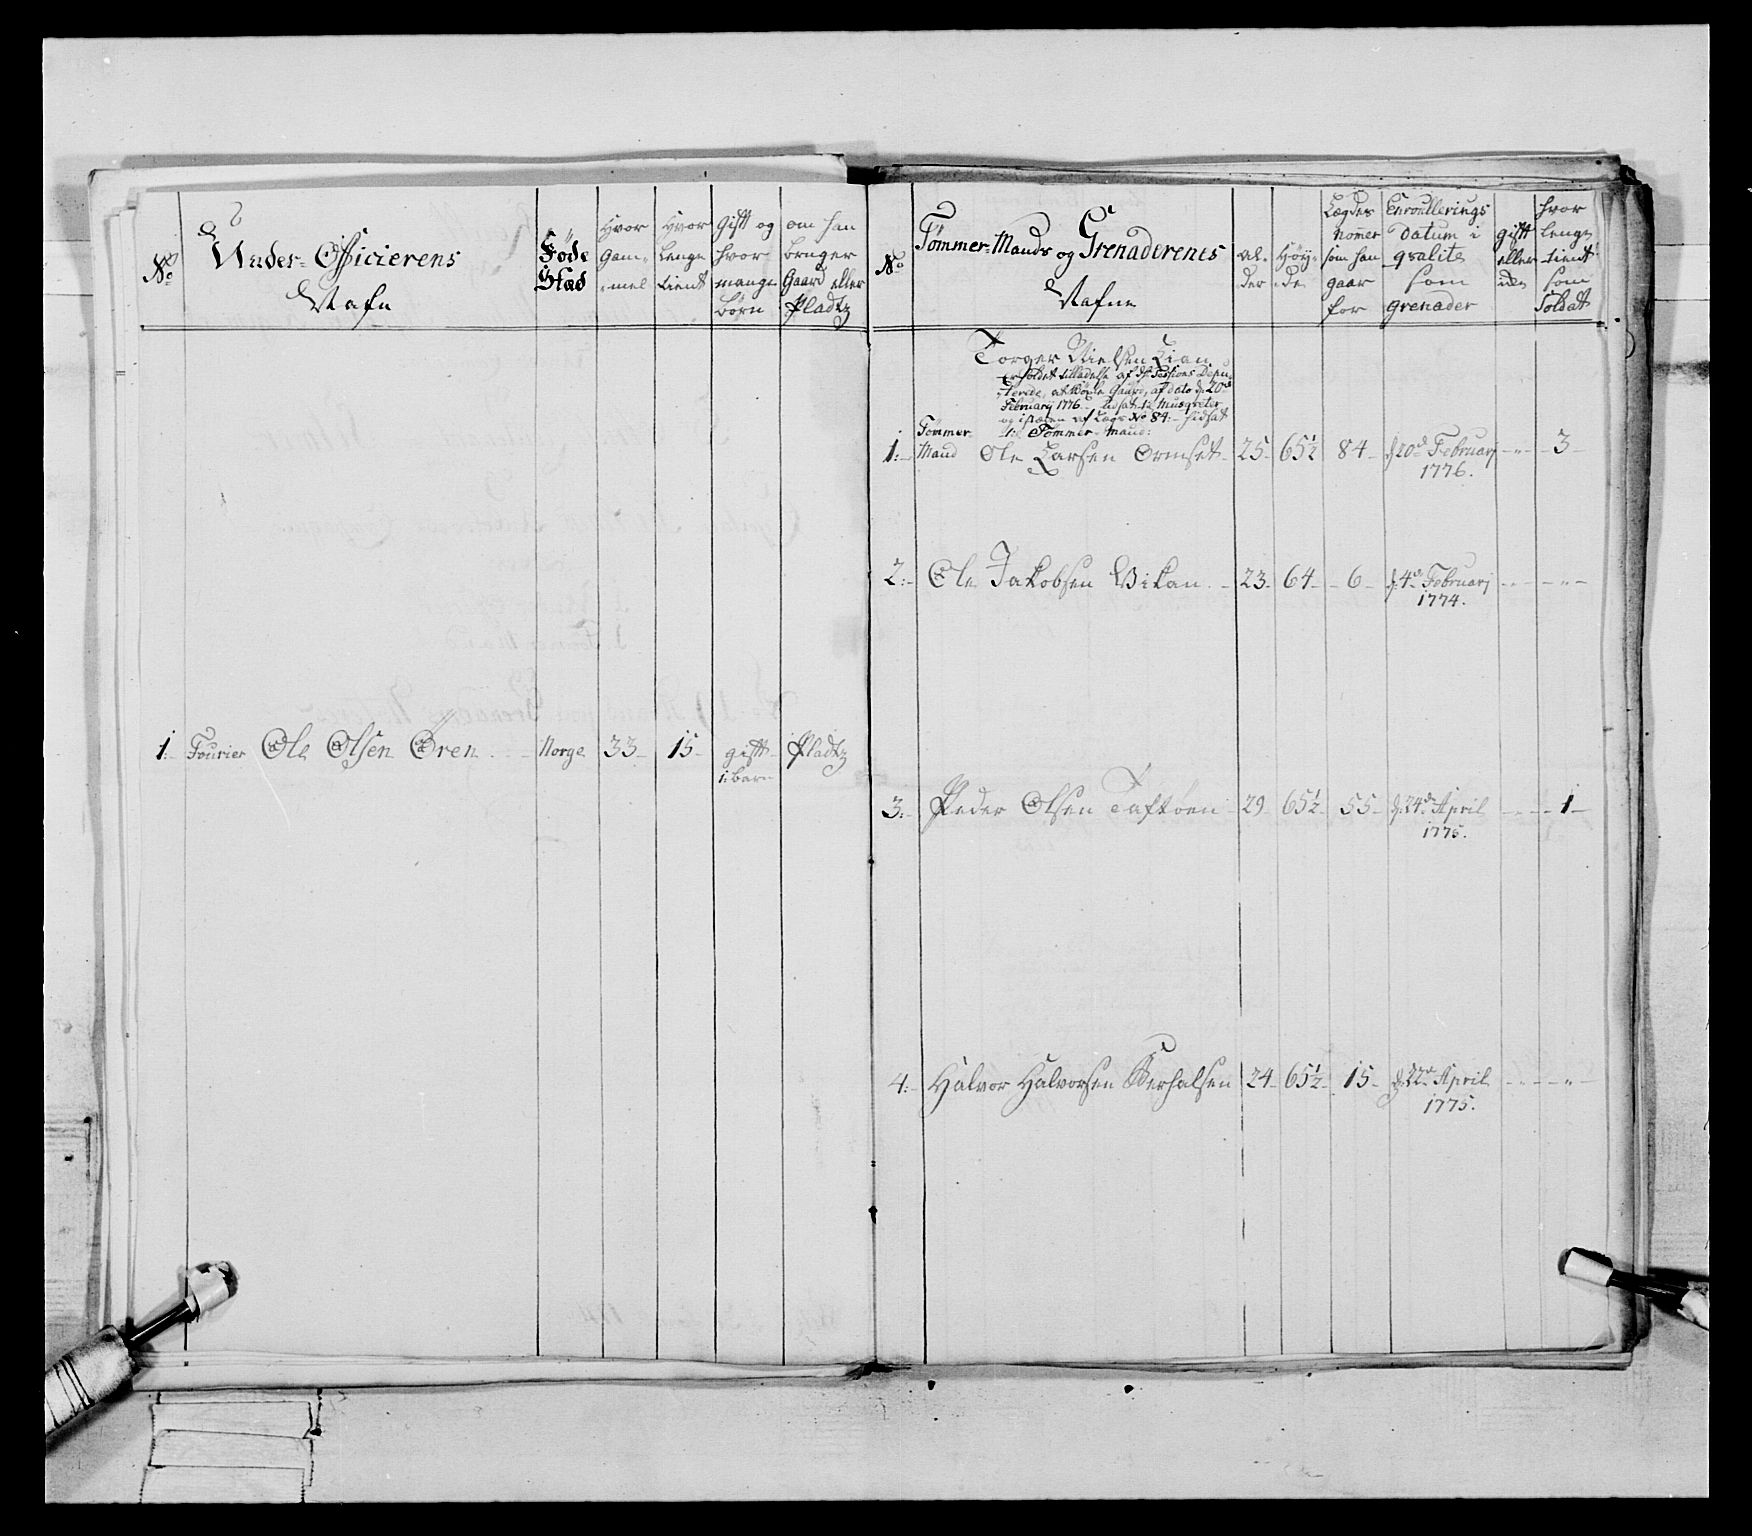 No
Under-Officierens
Nafn
Føde
Stæd
Hvor
Gam-
mel
Hvor
Lenge
tient
Gift og
hvor
mange
børn
om han
bruger
Gaard eller
Pladtz
1:- Fourier Ole Olsen Ören - Norge 33 15- gift- Pladtz
1: barn
No
Tømmer-Mands og Grenaderenes
Nafne
al-
der
Høy-
de
Lægdes
Nomer
som han
gaar
for
Enroullerings
Datum i
qvalite
som
grenader
gift
eller
ude
hvor
lenge
tient
som
Soldatt
Torger Nielsen Lian
Erholdet tilladelse af Sessions Depu-
terede, at Gaard, af dato d. 20de
Februarj 1776. til Musqveter
og i af Legs No 84:- hidsat
til Tømmer-Mand:
1:- Tømmer-
Mand Ole Larsen Ormset- 25- 65½ 84- d. 20de Februarj -"- 3-
1776.
2:- Ole Jakobsen Vikan - 23- 64- 6- d. 4de Februarj -"- -"-
1774.
3:- Peder Olsen Taftøen- 29- 65½- 55- d. 24de April -"- 1-
1775.
4:- Halvor Halvorsen Berhalsen 24- 65½- 15- d. 22de April -"- -"-
1775.